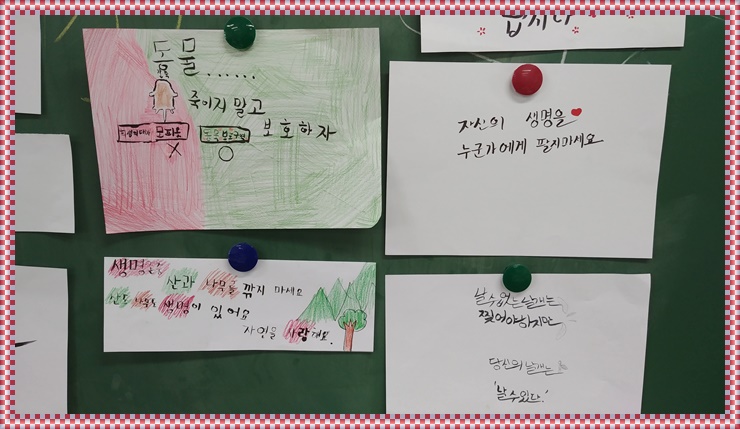 동물......
죽이지 말고
보호하자
모피옷
X
O
생명을
산과 나무를 꺾지 마세요
산도 나무도 생명이 있어요
자연을 사랑해요.
자신의 생명을
누군가에게 팔지마세요
날 수 없는 날개는
찢어야하지만
당신의 날개는
'날 수 있다.'